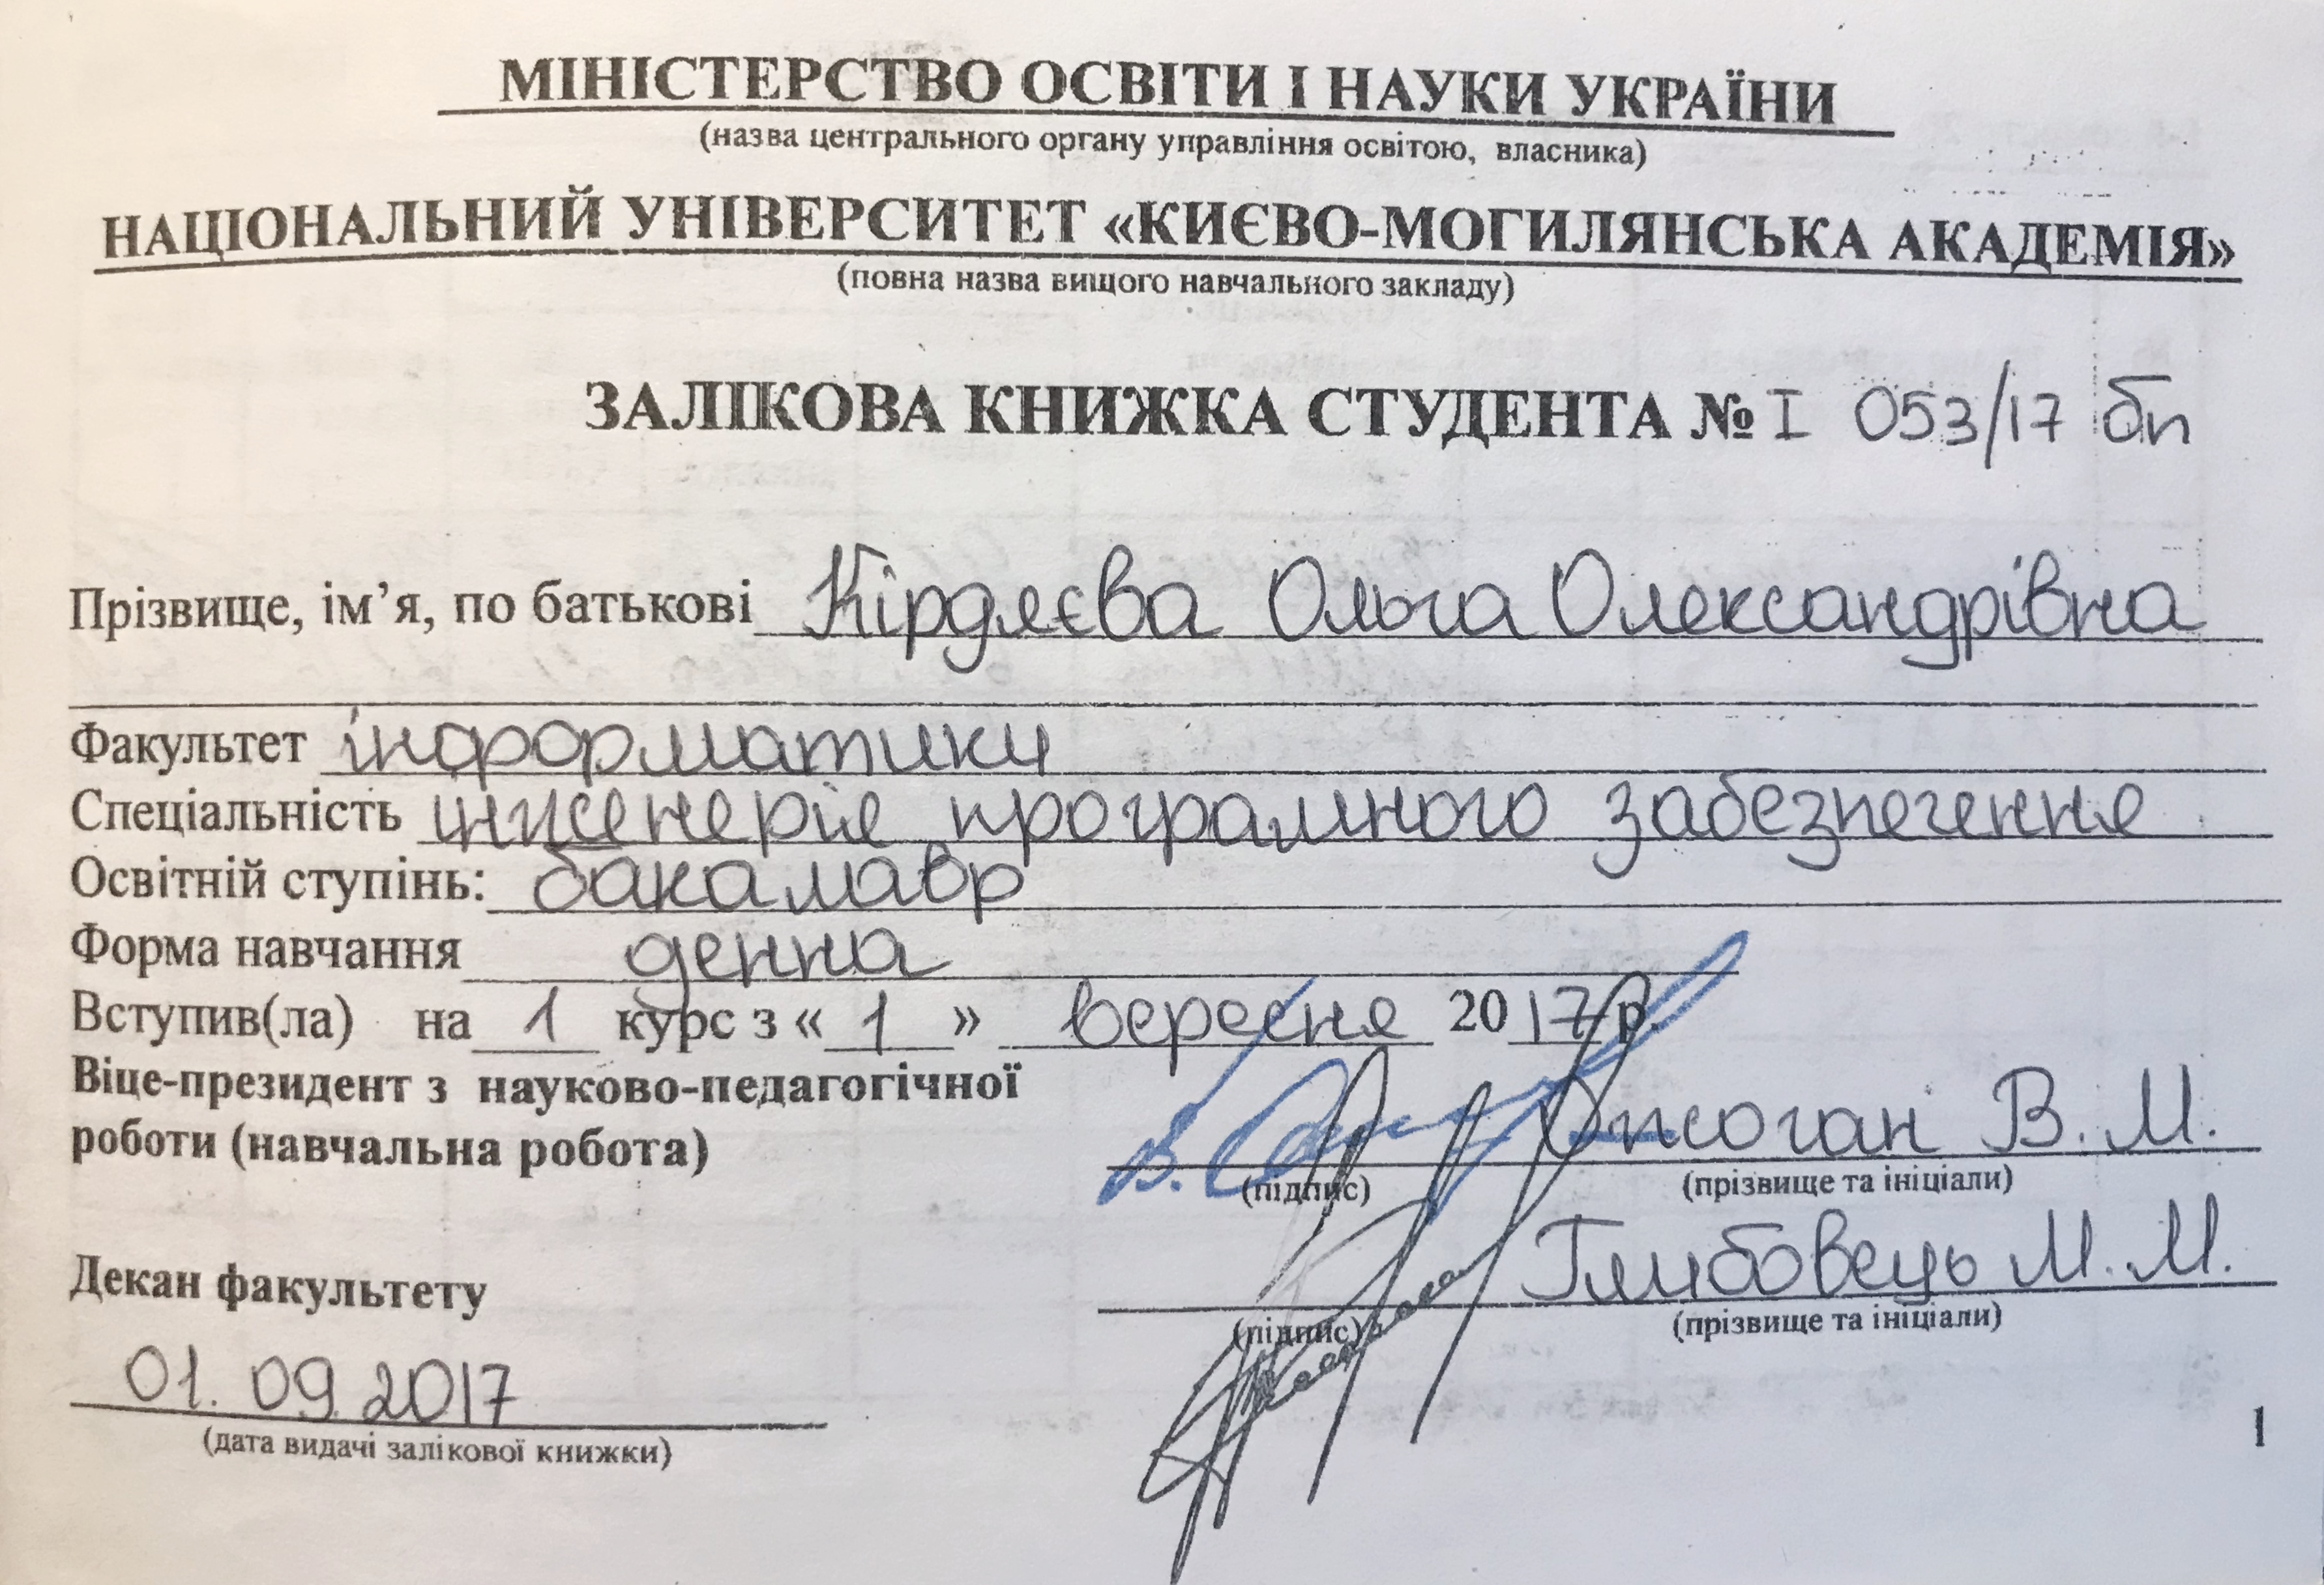 МІНІСТЕРСТВО ОСВІТИ І НАУКИ УКРАЇНИ
(назва центрального органу управління освітою, власника)
НАЦІОНАЛЬНИЙ УНІВЕРСИТЕТ «КИЄВО-МОГИЛЯНСЬКА АКАДЕМІЯ»
(повна назва вищого навчального закладу)
ЗАЛІКОВА КНИЖКА СТУДЕНТА № І 053/17 бп
Прізвище, ім’я, по батькові Кірдяєва Ольга Олександрівна
Факультет інформатики
Спеціальність інженерія програмного забезпечення
Освітній ступінь: бакалавр
Форма навчання денна
Вступив(ла) на 1 курс з « 1 » вересня 2017 р.
Віце-президент з науково-педагогічної
роботи (навчальна робота) В. М.
(підпис) (прізвище та ініціали)
Декан факультету Глибовець М. М.
(підпис) (прізвище та ініціали)
01.09.2017
(дата видачі залікової книжки)
1